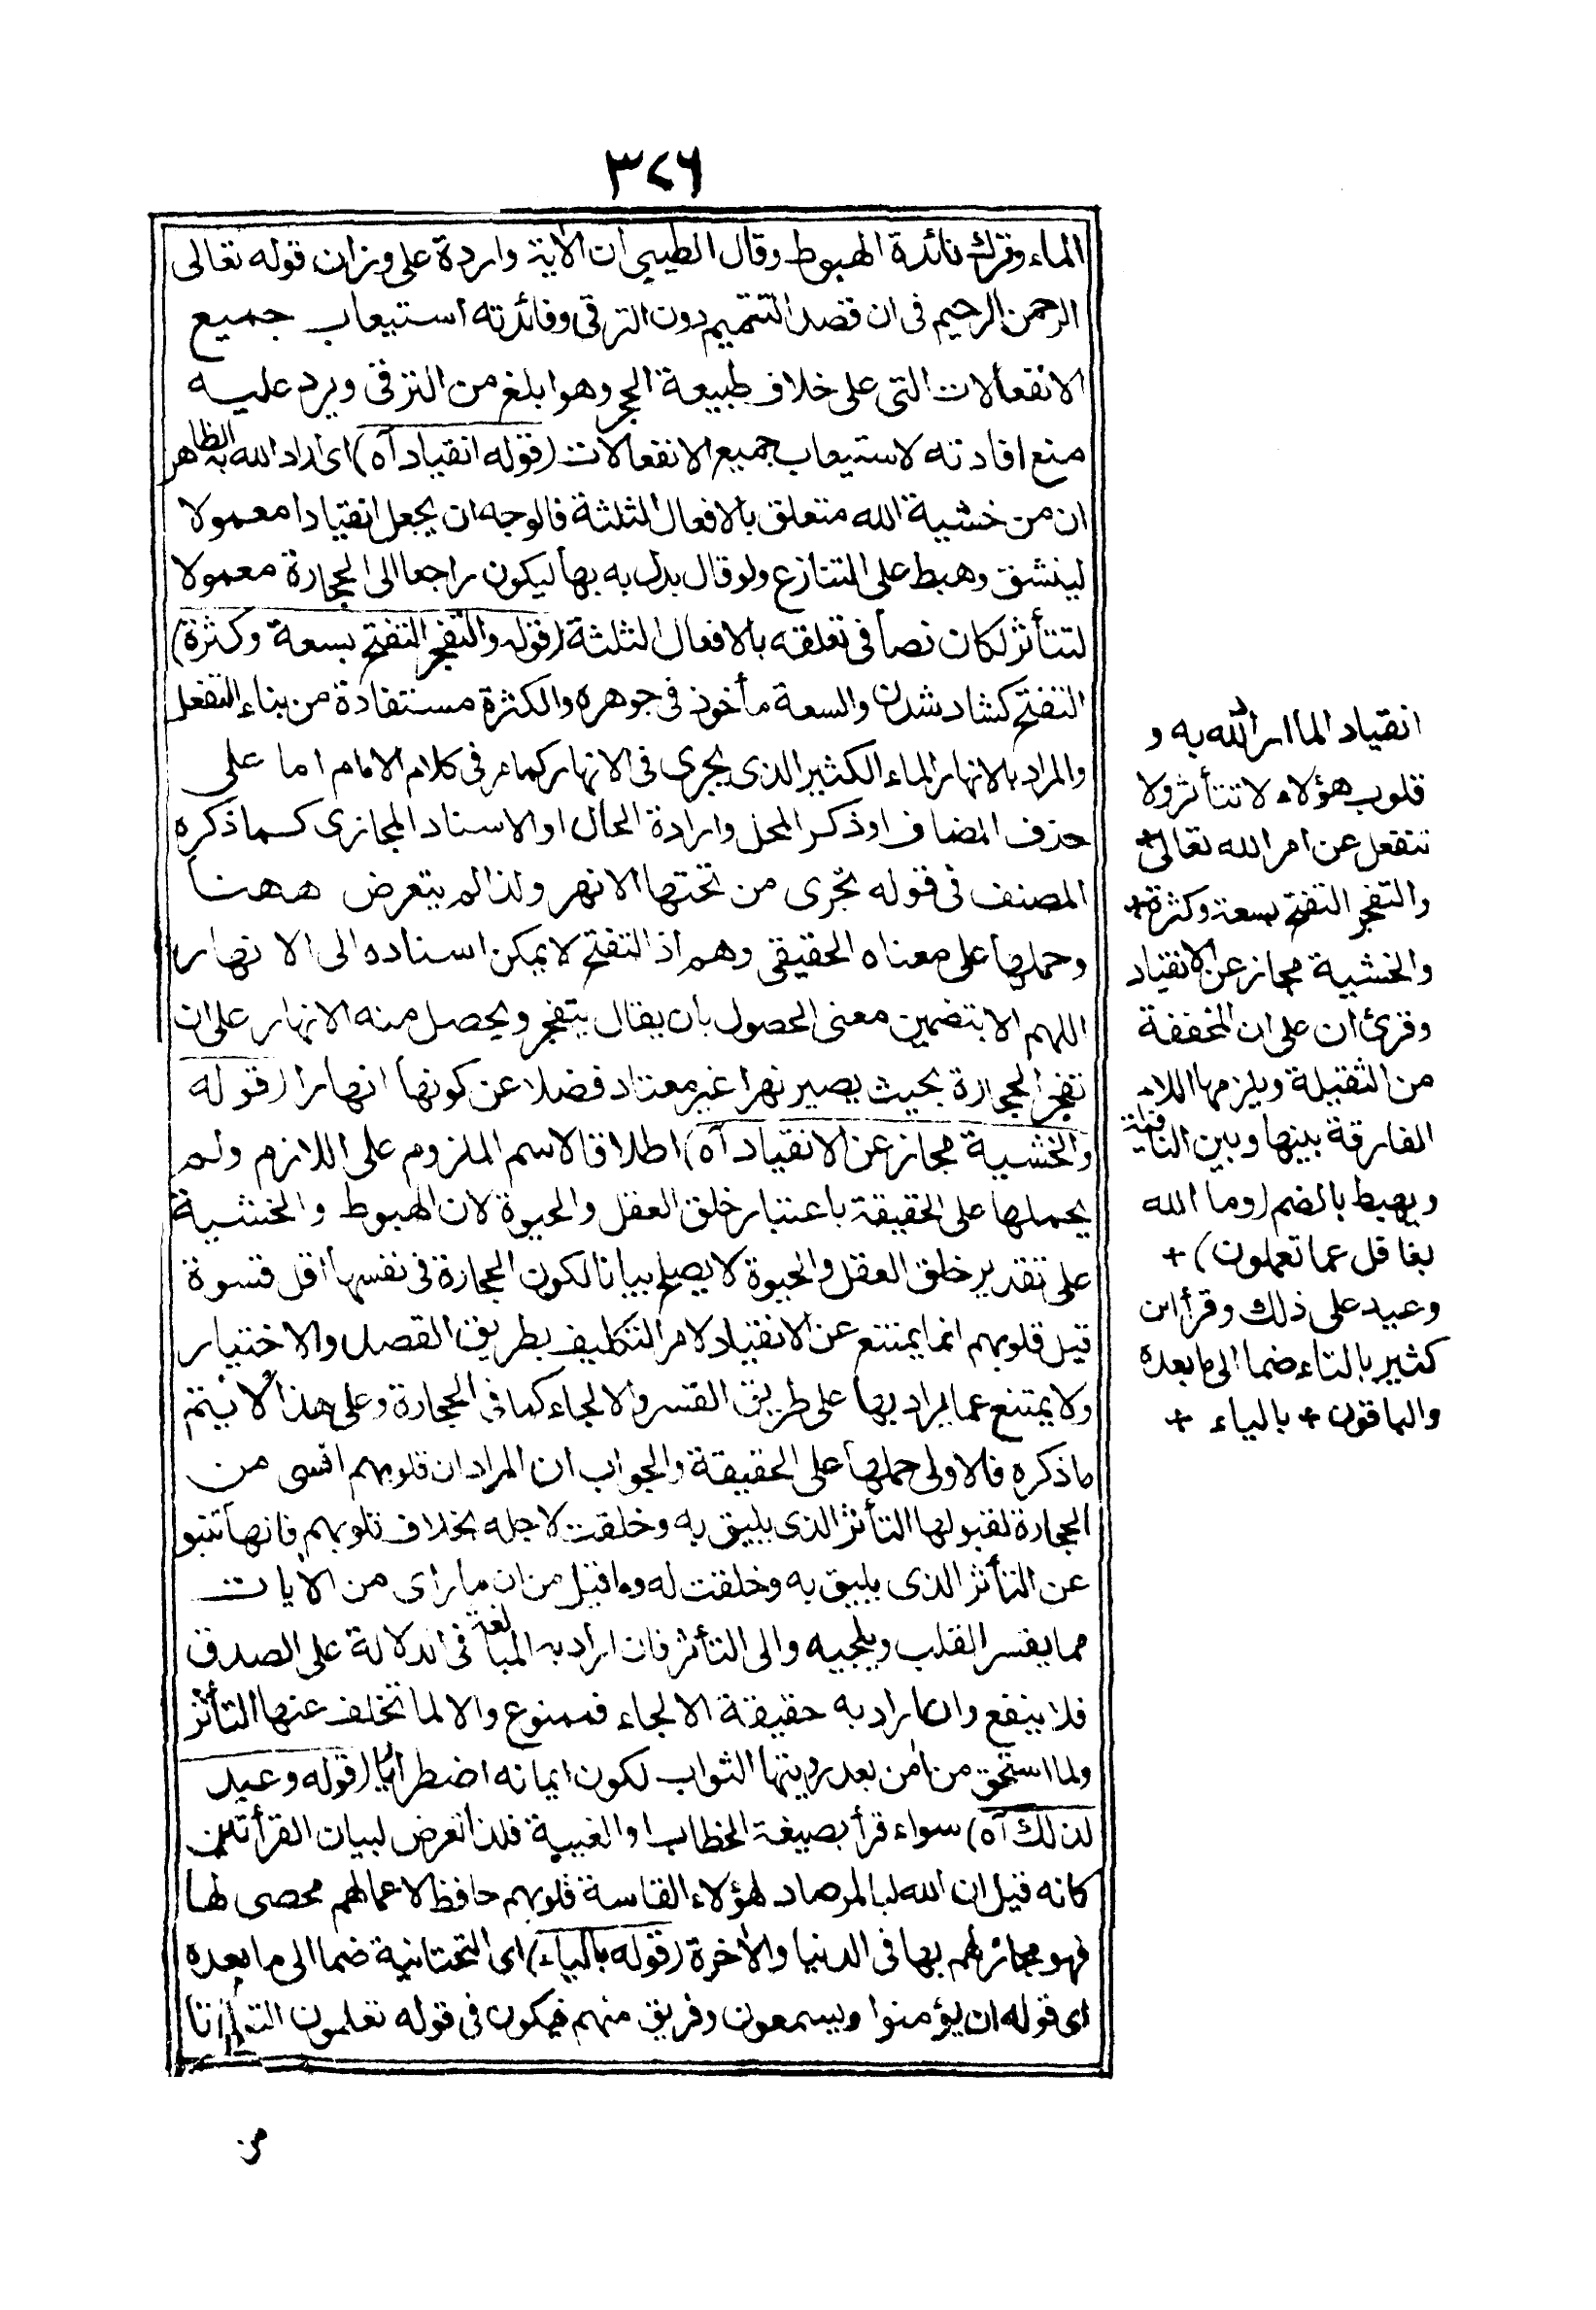 ٣٢٦
الماء وترك فائدة الهبوط وقال الطيبي ان الآية واردة على وزان قوله تعالى
الرحمن الرحيم فى ان قصد التتميم دون الترقى وفائدته استيعاب جميع
الانفعالات التى على خلاف طبيعة الحجر وهو ابلغ من الترقى ويرد عليه
منع افادته لاستيعاب جميع الانفعالات (قوله انقياد آه) اى اراد الله به الظاهر
ان من خشية الله متعلق بالافعال الثلثة فالوجه ان يجعل انقيادا معمولا
لينشق وهبط على التنازع ولو قال بدل به بها ليكون راجعا الى الحجارة معمولا
لتتأثر لكان نصا فى تعلقه بالافعال الثلثة (قوله والتفجر التفتح بسعة وكثرة)
التفتح كشاد شدن والسعة مأخوذ فى جوهره والكثرة مستفادة من بناء التفعل
والمراد بالانهار الماء الكثير الذى يجرى فى الانهار كما مر فى كلام الامام اما على
حذف المضاف او ذكر المحل وارادة الحال او الاسناد المجازى كما ذكره
المصنف فى قوله تجرى من تحتها الانهر ولذا لم يتعرض ههنا
وحملها على معناه الحقيقى وهم اذ التفتح لا يمكن اسناده الى الانهار
اللهم الا بتضمين معنى الحصول بان يقال يتفجر ويحصل منه الانهار على ان
تفجر الحجارة بحيث يصير نهرا غير معتاد فضلا عن كونها انهارا (قوله
والخشية مجاز عن الانقياد آه) اطلاقا لاسم الملزوم على اللازم ولم
يحملها على الحقيقة باعتبار خلق العقل والحيوة لان الهبوط والخشية
على تقدير خلق العقل والحيوة لا يصلح بيانا لكون الحجارة فى نفسها اقل قسوة
قيل قلوبهم انما يمتنع عن الانقياد لامر التكليف بطريق القصد والاختيار
ولا يمتنع عما يراد بها على طريق القسر والالجاء كما فى الحجارة وعلى هذا لا يتم
ما ذكره فالاولى حملها على الحقيقة والجواب ان المراد ان قلوبهم اقسى من
الحجارة لقبولها التأثر الذى يليق به وخلقت لاجله بخلاف قلوبهم فانها تنبو
عن التأثر الذى يليق به وخلقت له وما قيل من ان ما رأى من الآيات
مما يقسر القلب ويلجيه والى التأثر فان اراد به المبالغة فى الدلالة على الصدق
فلا ينفع وان اراد به حقيقة الالجاء فممنوع والا لما تخلف عنها التأثر
ولما استحق من آمن بعد رويتها الثواب لكون ايمانه اضطراريا (قوله وعيد
لذلك آه) سواء قرأ بصيغة الخطاب او الغيبة فلذا تعرض لبيان القرأتين
كانه قيل ان الله لبالمرصاد لهؤلاء القاسة قلوبهم حافظ لاعمالهم محصى لها
فهو مجاز لهم بها فى الدنيا والاخرة (قوله بالياء) اى التحتانية ضما الى ما بعده
اى قوله ان يؤمنوا ويسمعون وفريق منهم فيكون فى قوله تعلمون
من
انقياد الما امر الله به و
قلوب هؤلاء لا تتأثر ولا
تنفعل عن امر الله تعالى +
والتفجر التفتح بسعة وكثرة +
والخشية مجاز عن الانقياد
وقرئ ان على ان المخففة
من الثقيلة ويلزمها اللام
الفارقة بينها وبين النافية
ويهبط بالضم (وما الله
بغافل عما تعملون) +
وعيد على ذلك وقرأ ابن
كثير بالتاء ضما الى ما بعده
والباقون + بالياء +